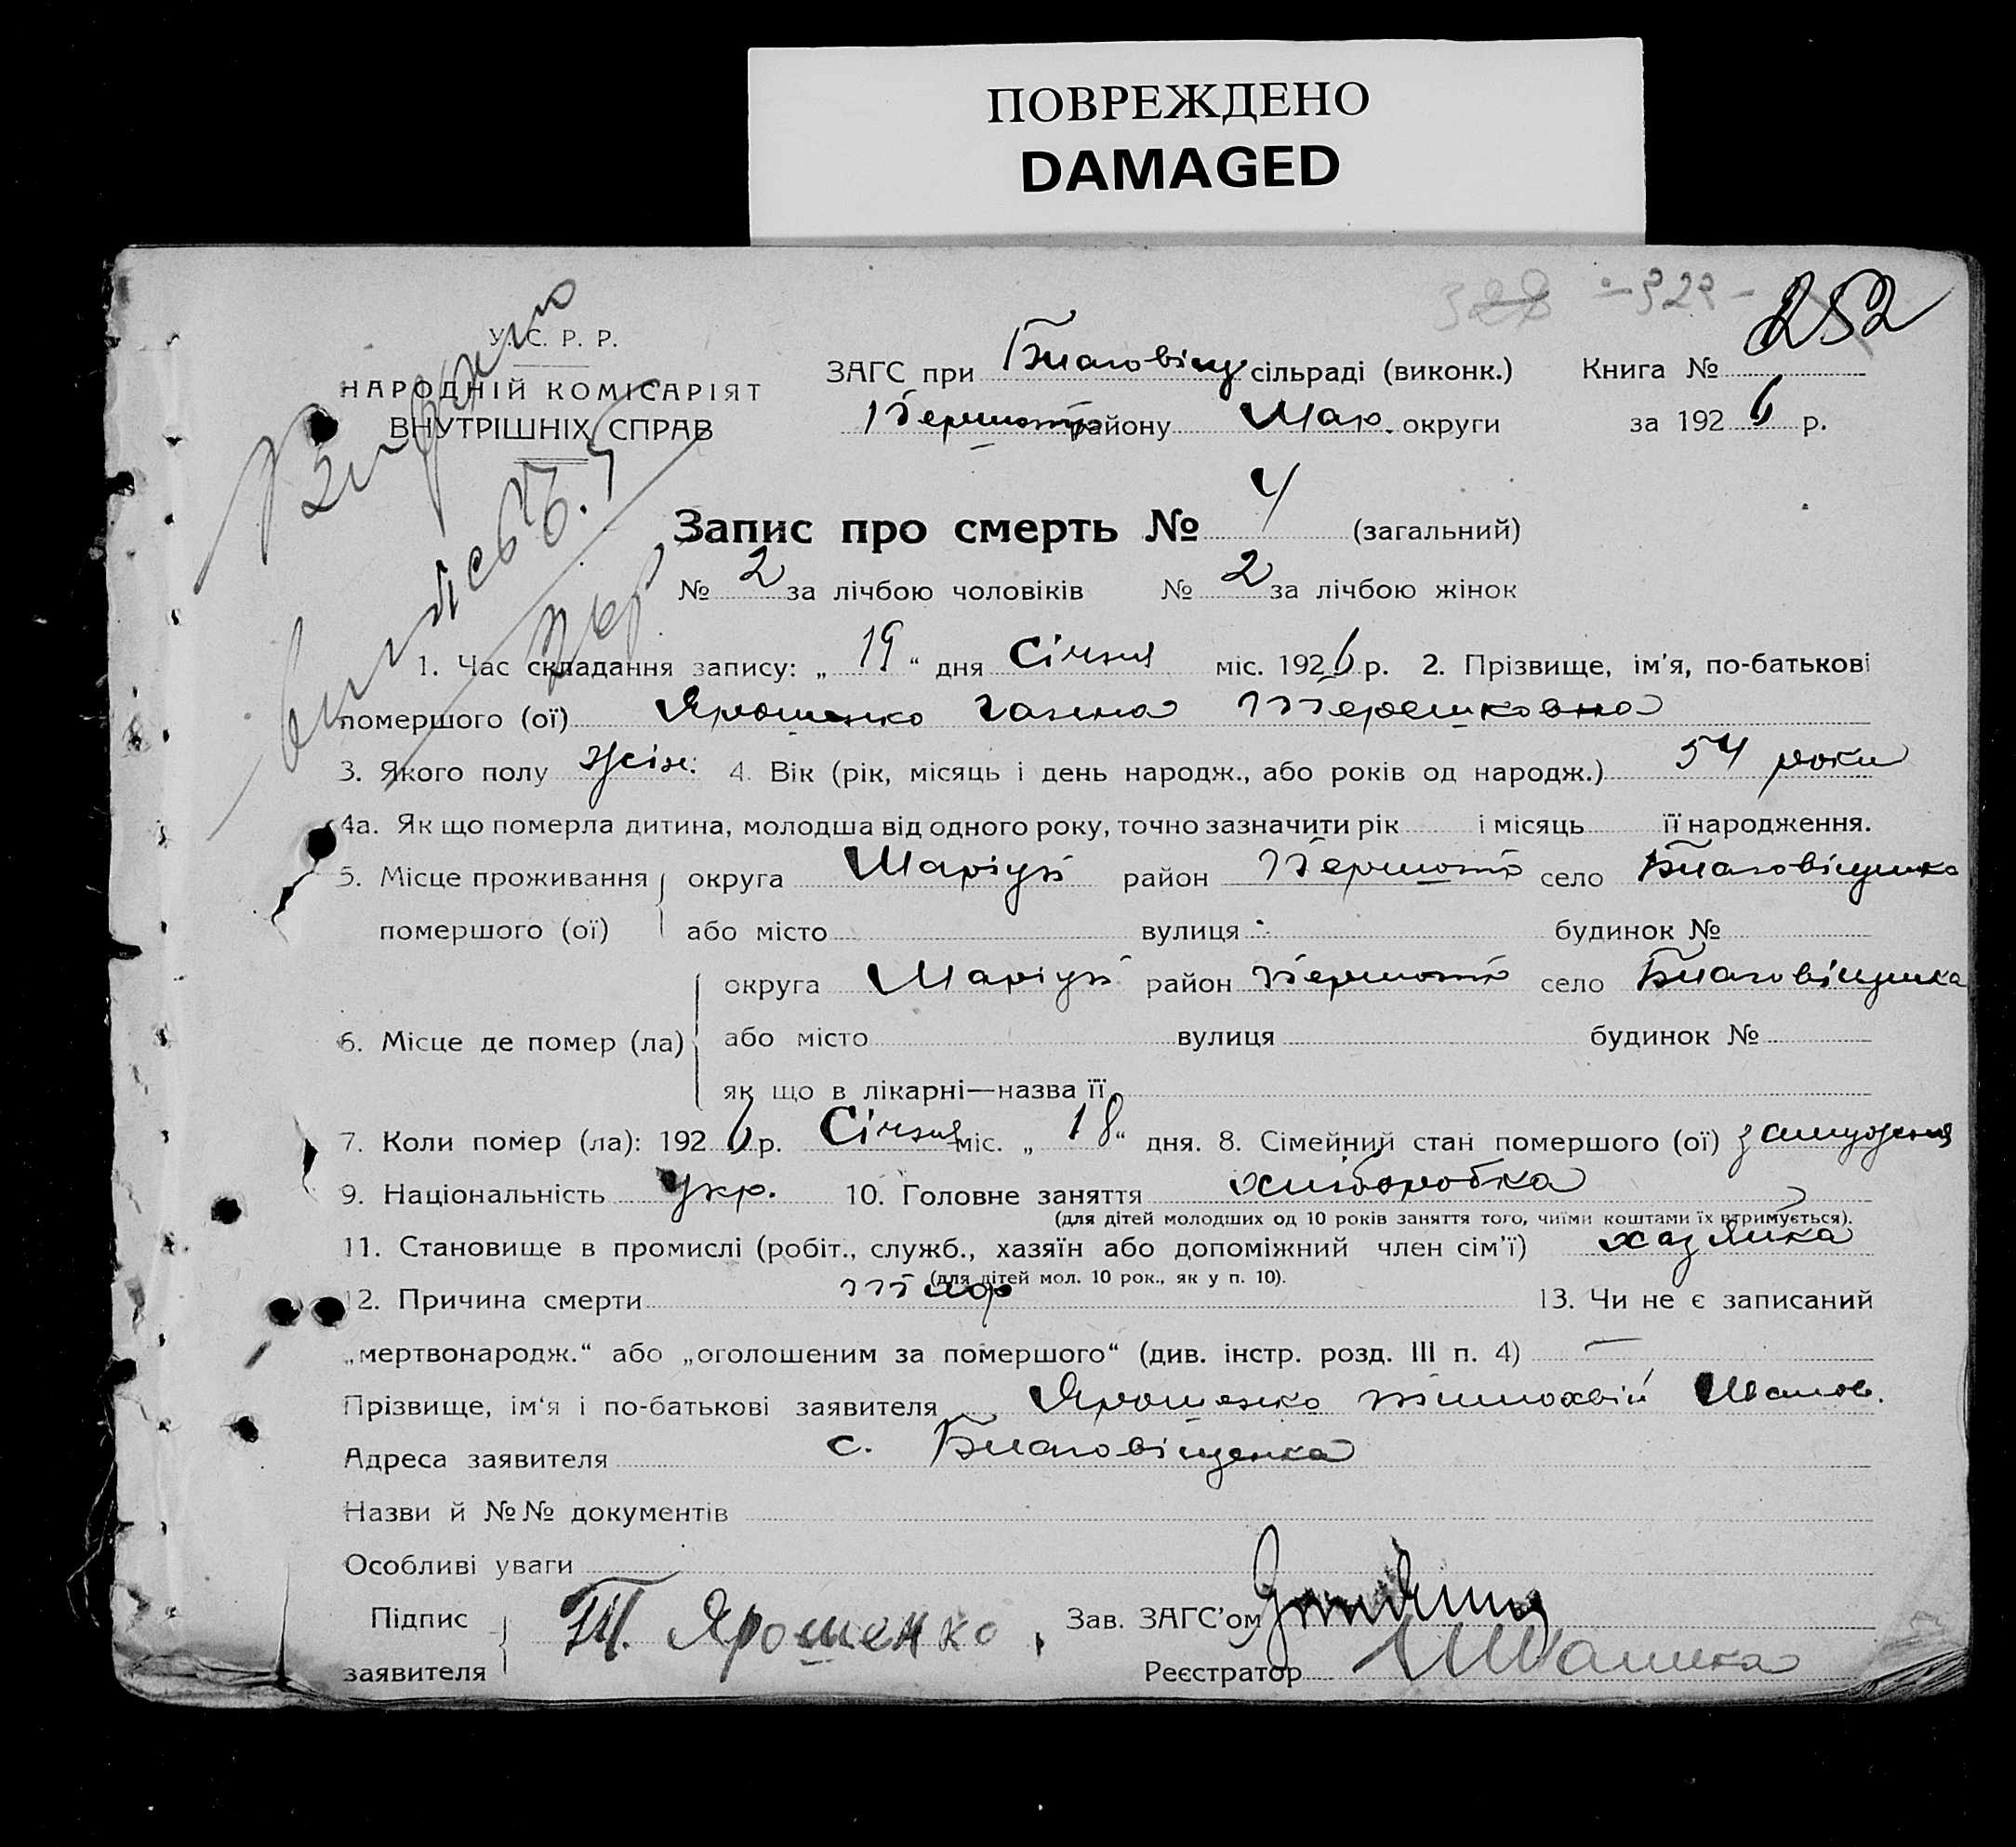 ПОВРЕЖДЕНО
DAMAGED
328 - 322 - 252
У. С. Р. Р.
НАРОДНІЙ КОМІСАРІЯТ
ВНУТРІШНІХ СПРАВ
Видано
ЗАГС при Благовіщ сільраді (виконк.) Книга №
району Мар. округи за 1926 р.
Запис про смерть № 4 (загальний)
№ 2 за лічбою чоловіків № 2 за лічбою жінок
1. Час складання запису: „ 19 “ дня Січня міс. 1926 р. 2. Прізвище, ім’я, по-батькові
помершого (ої) Ярошенко Галина Терешковна
3. Якого полу жін. 4. Вік (рік, місяць і день народж., або років од народж.) 54 роки
4а. Як що померла дитина, молодша від одного року, точно зазначити рік і місяць її народження.
5. Місце проживання округа Маріуп район село Благовіщинка
помершого (ої) або місто вулиця будинок №
округа Маріуп район село Благовіщинка
6. Місце де помер (ла) або місто вулиця будинок №
як що в лікарні—назва її
7. Коли помер (ла): 1926 р. Січня міс. „ 18 “ дня. 8. Сімейний стан помершого (ої) замужня
9. Національність укр. 10. Головне заняття хліборобка
(для дітей молодших од 10 років заняття того, чиїми коштами їх втримується).
11. Становище в промислі (робіт., служб., хазяїн або допоміжний член сім’ї) хазяйка
(для дітей мол. 10 рок., як у п. 10).
12. Причина смерти 13. Чи не є записаний
„мертвонародж.“ або „оголошеним за помершого“ (див. інстр. розд. III п. 4) —
Прізвище, ім‘я і по-батькові заявителя Ярошенко Тимохвій
Адреса заявителя с. Благовіщенка
Назви й №№ документів
Особливі уваги
Підпис заявителя Т. Ярошенко Зав. ЗАГС’ом
Реєстратор